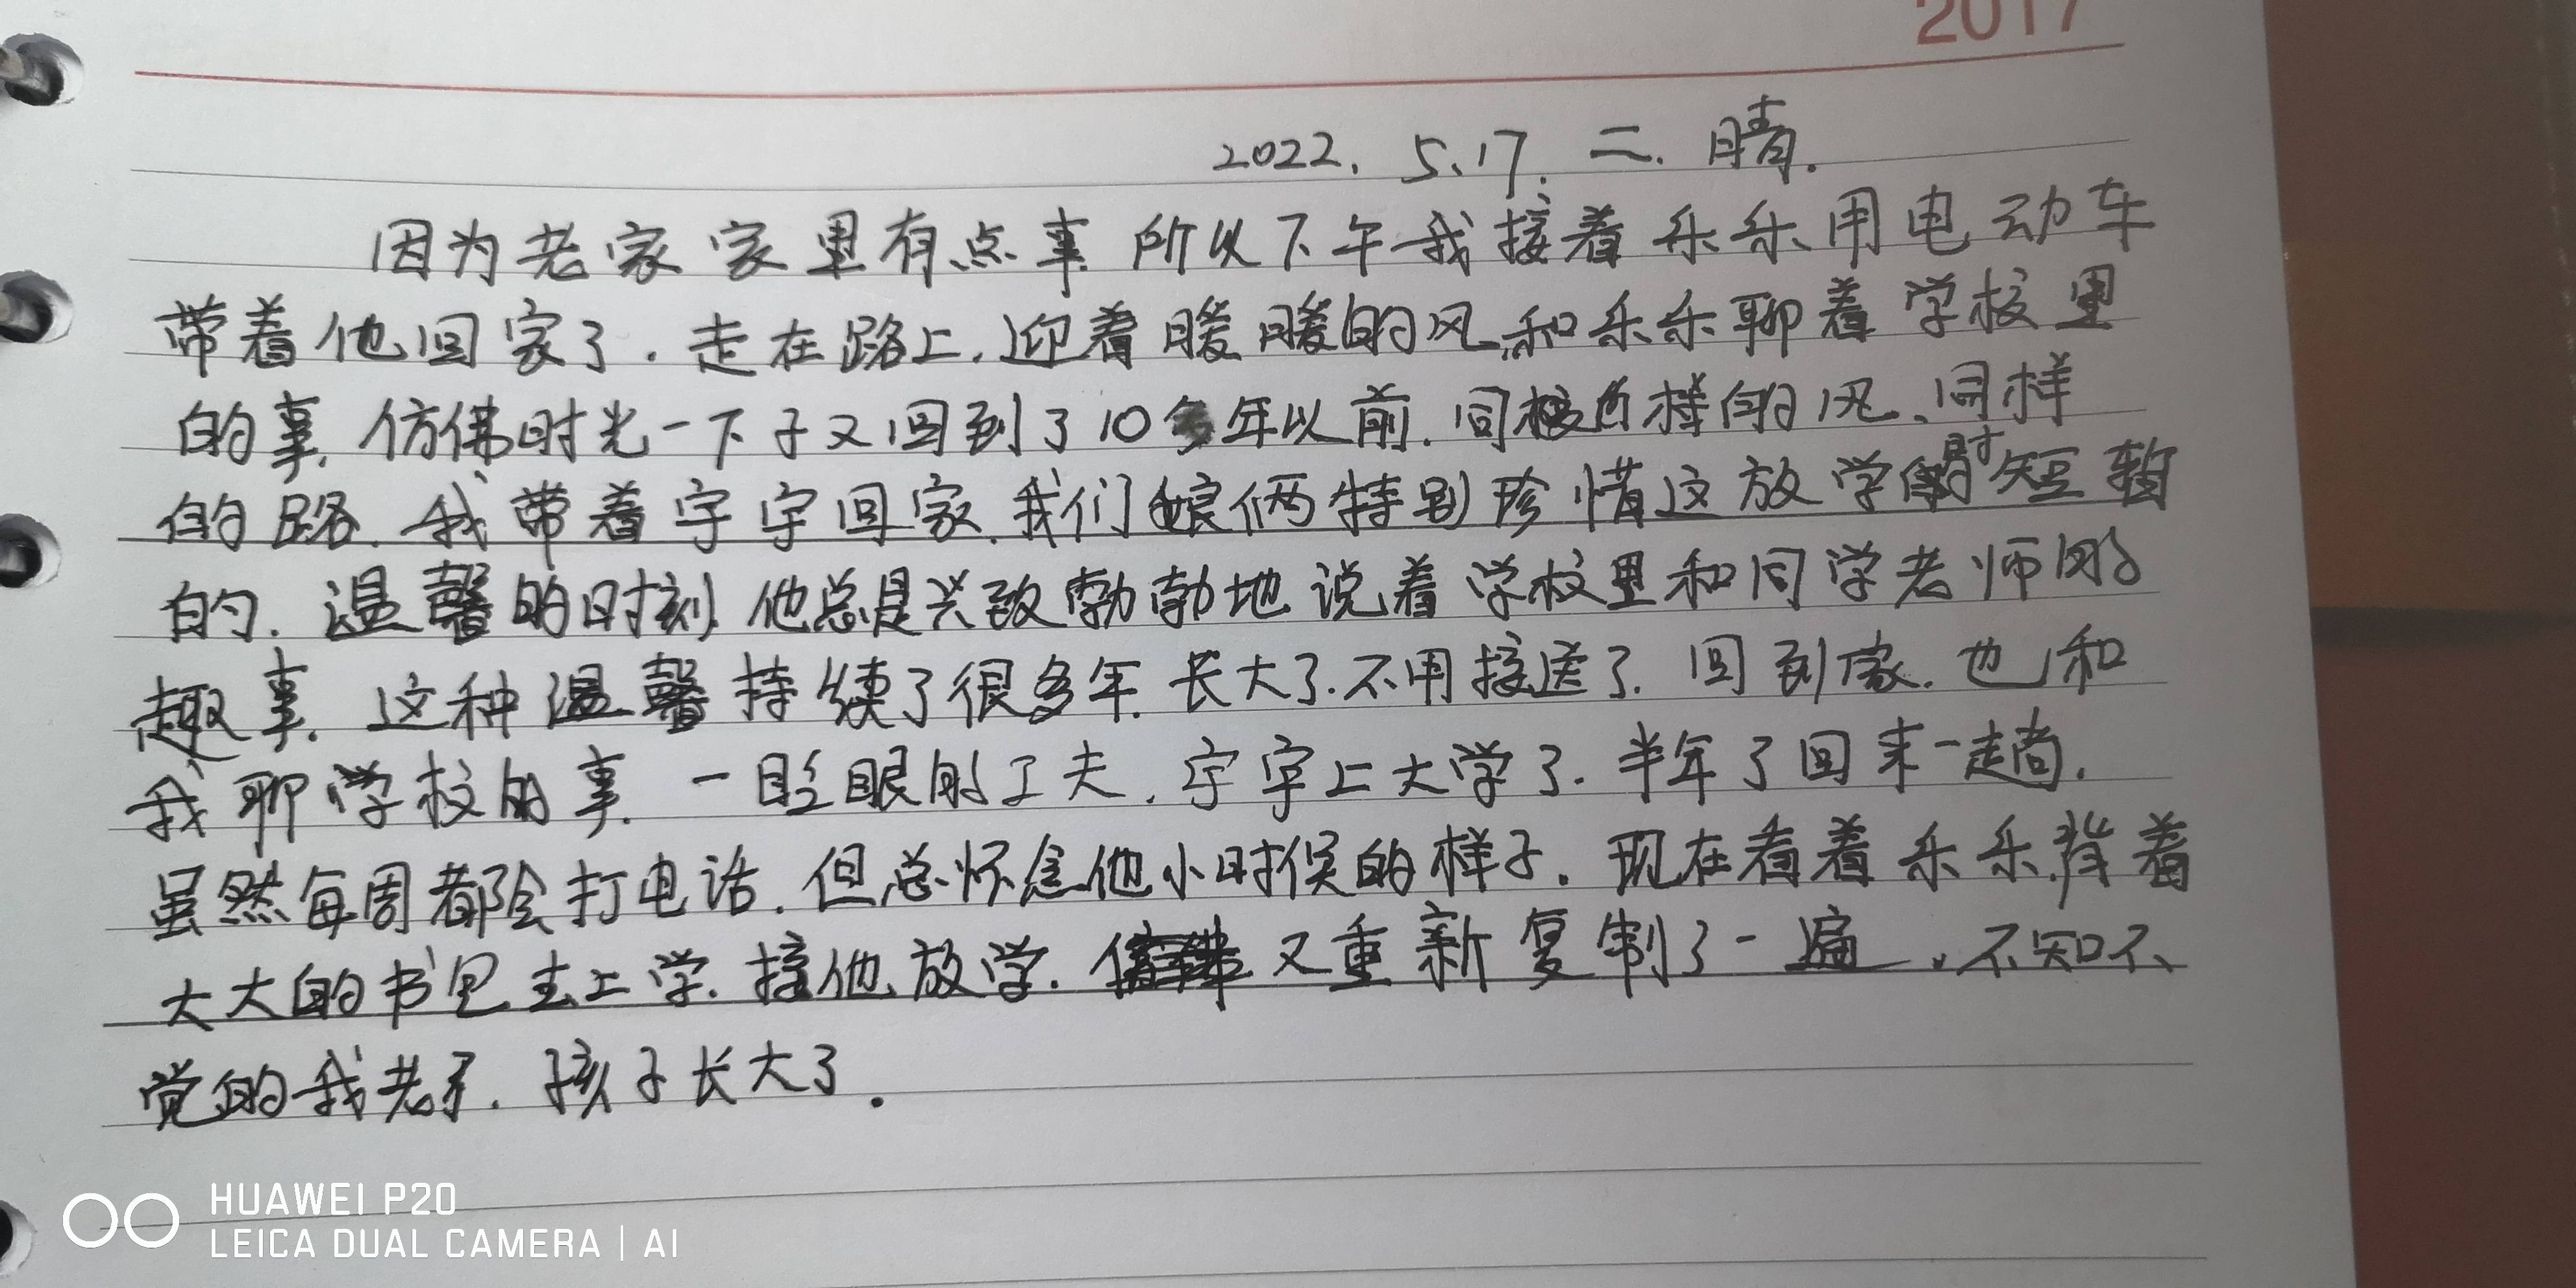 2017
2022. 5.17. 二. 晴.
因为老家家里有点事 所以下午我接着乐乐用电动车
带着他回家了. 走在路上, 迎着暖暖的风, 和乐乐聊着学校里
的事, 仿佛时光一下子又回到了10多年以前. 同样的风, 同样
的路. 我带着宇宇回家, 我们娘俩特别珍惜这放学时短暂
的. 温馨的时刻, 他总是兴致勃勃地说着学校里和同学老师的
趣事. 这种温馨持续了很多年. 长大了. 不用接送了. 回到家. 也和
我聊学校的事. 一眨眼的工夫, 宇宇上大学了. 半年了回来一趟.
虽然每周都会打电话. 但总怀念他小时候的样子. 现在看着乐乐背着
大大的书包去上学. 接他放学. 又重新复制了一遍, 不知不
觉的我老了. 孩子长大了.
HUAWEI P20
LEICA DUAL CAMERA | AI